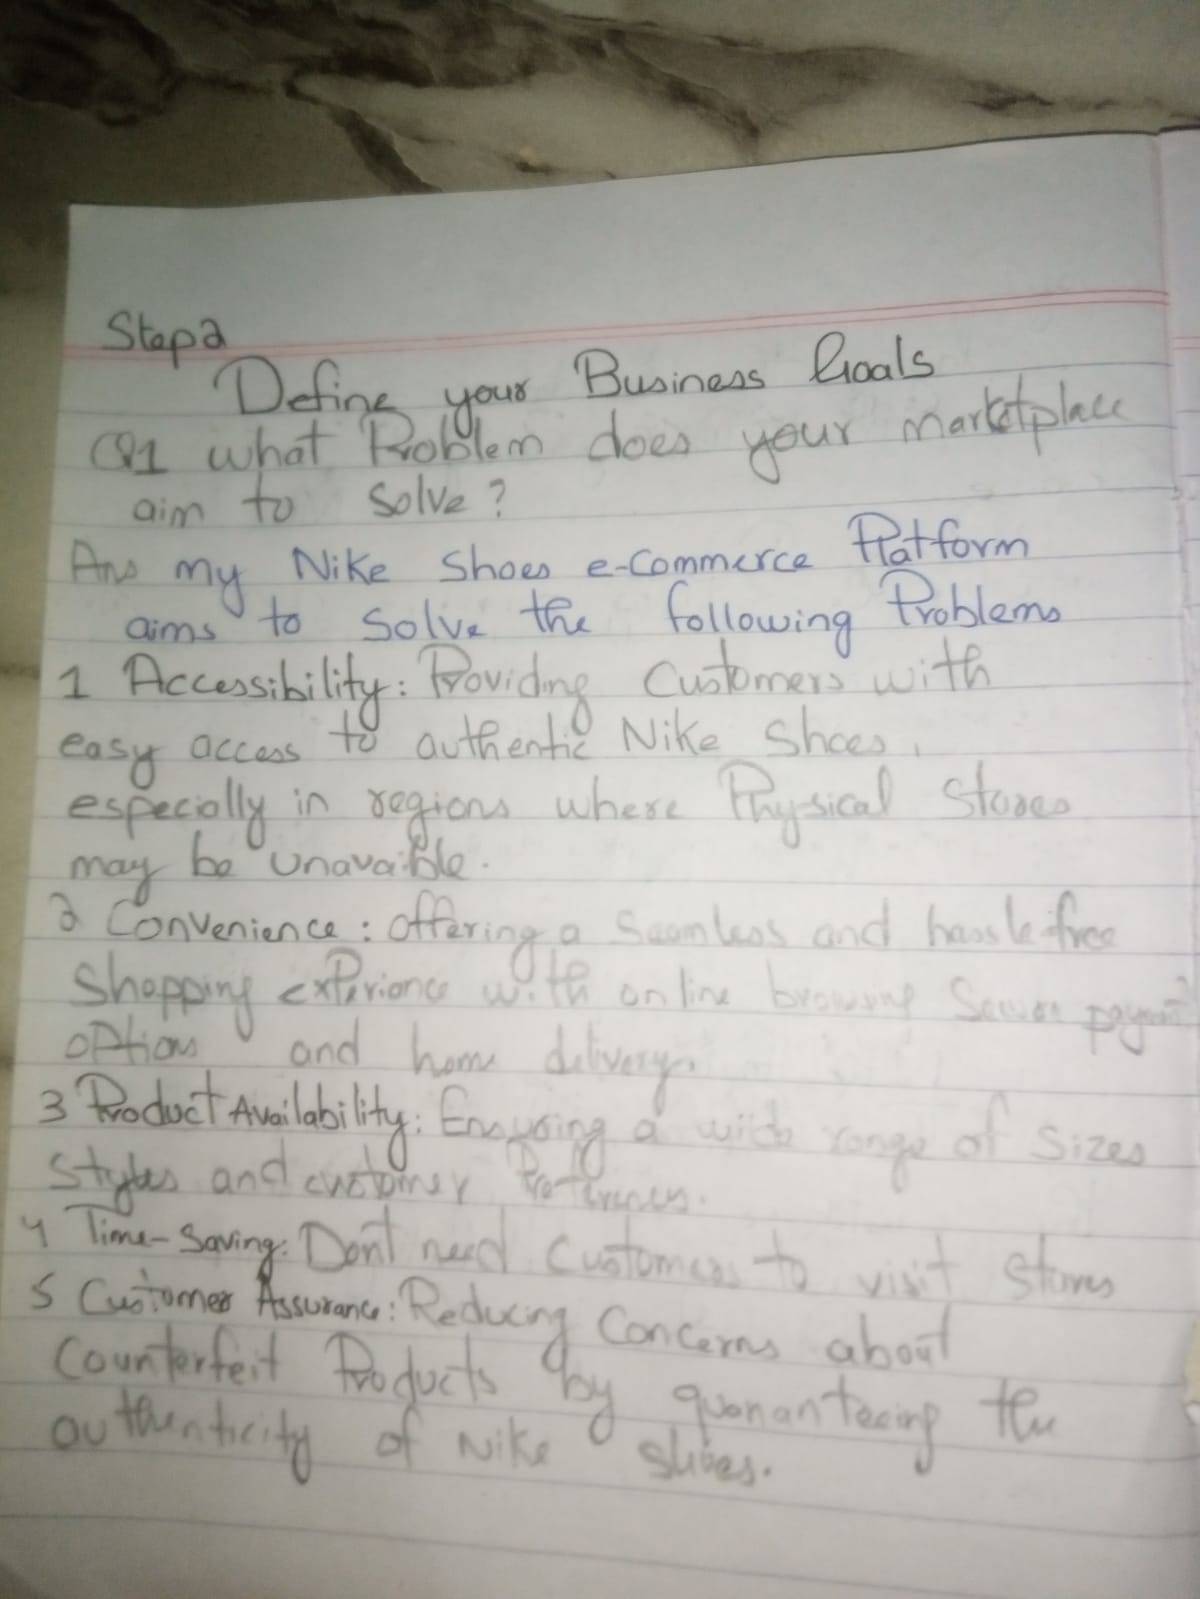 Step2
Define your Business Goals
Q1 what Problem does your marketplace
aim to solve?
Ans my Nike Shoes e-Commerce Platform
aims to Solve the following Problems
1 Accessibility: Providing Customers with
easy access to authentic Nike Shoes,
especially in regions where Physical Stores
may be unavaible.
2 Convenience: offering a Seamless and hassle-free
Shopping experience with online browsing Secure payment
options and home delivery.
3 Product Availability: Ensuring a wide range of Sizes
Styles and customer Preferences.
4 Time-Saving: Don't need Customers to visit Stores
5 Customer Assurance: Reducing Concerns about
Counterfeit Products by guaranteeing the
authenticity of Nike shoes.